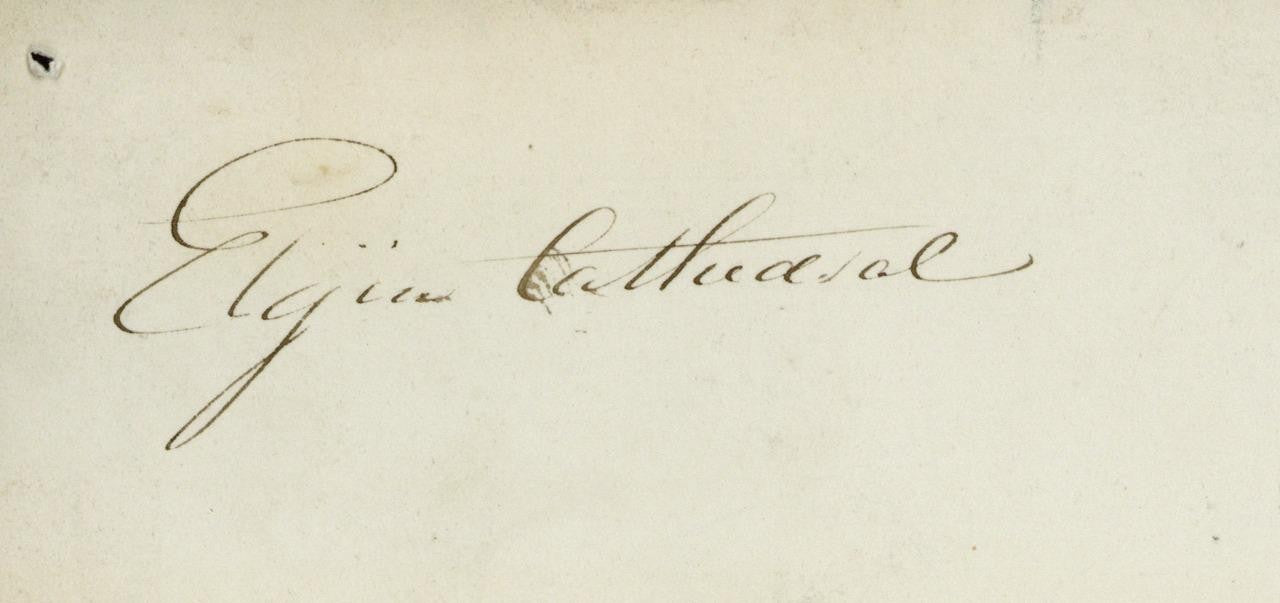 Elgin Cathedral